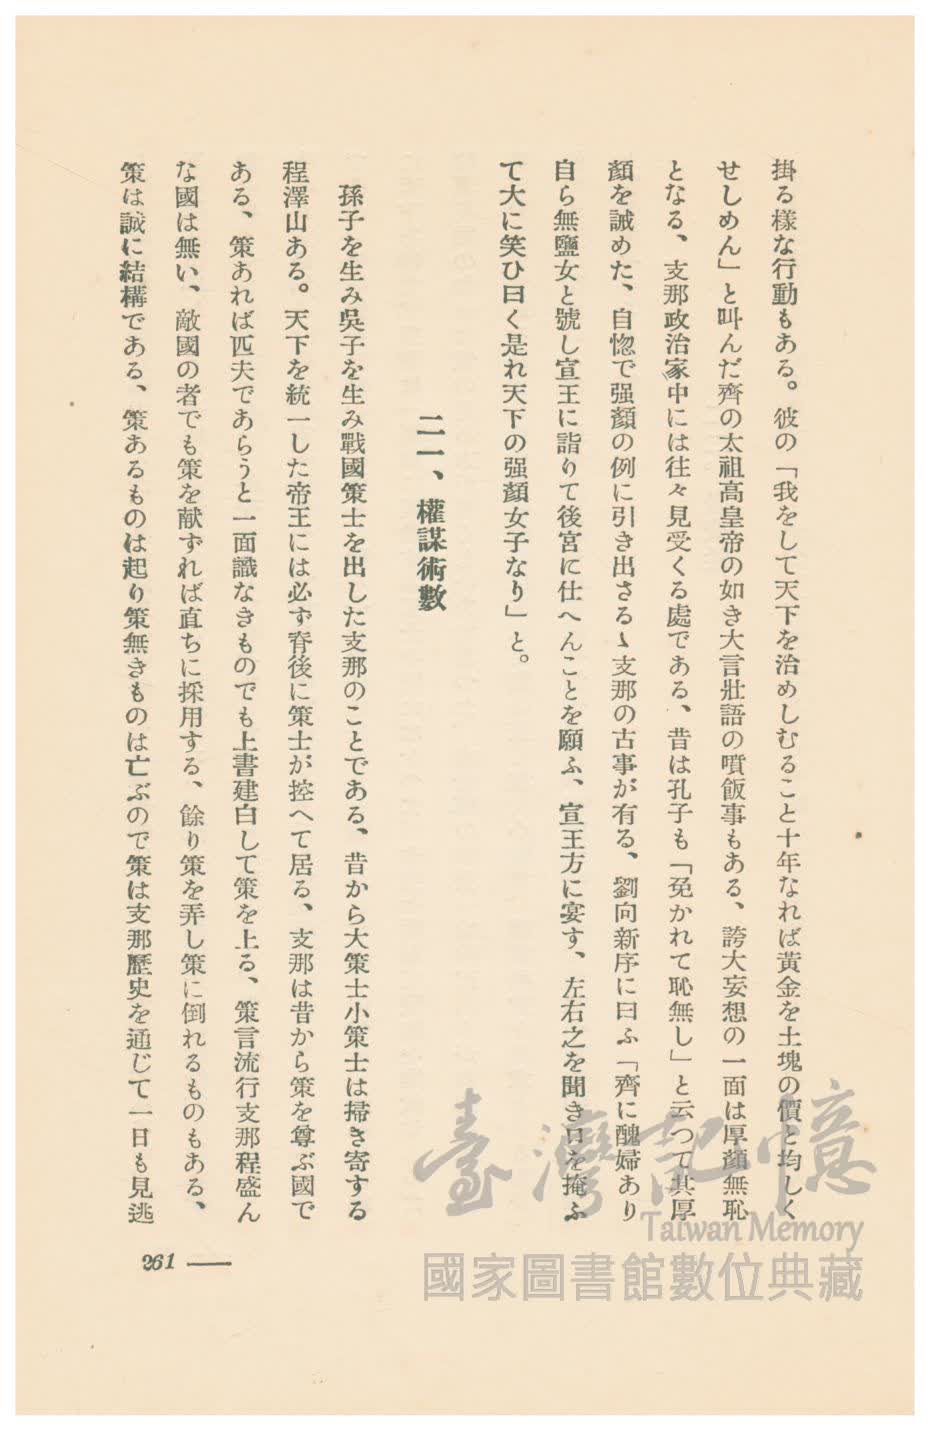 掛る樣な行動もある。彼の「我をして天下を治めしむること十年なれば黃金を土塊の價と均しく
せしめん」と叫んだ齊の太祖高皇帝の如き大言壯語の噴飯事もある、誇大妄想の一面は厚顏無恥
となる、支那政治家中には往々見受くる處である、昔は孔子も「免かれて恥無し」と云つて其厚
顏を誡めた、自惚で强顏の例に引き出さるゝ支那の古事が有る、劉向新序に曰ふ「齊に醜婦あり
自ら無鹽女と號し宣王に詣りて後宮に仕へんことを願ふ、宣王方に宴す、左右之を聞き口を掩ふ
て大に笑ひ曰く是れ天下の强顏女子なり」と。
二一、權謀術數
孫子を生み吳子を生み戰國策士を出した支那のことである、昔から大策士小策士は掃き寄する
程澤山ある。天下を統一した帝王には必ず脊後に策士が控へて居る、支那は昔から策を尊ぶ國で
ある、策あれば匹夫であらうと一面識なきものでも上書建白して策を上る、策言流行支那程盛ん
な國は無い、敵國の者でも策を献ずれば直ちに採用する、餘り策を弄し策に倒れるものもある、
策は誠に結構である、策あるものは起り策無きものは亡ぶので策は支那歷史を通じて一日も見逃
261
臺灣記憶
Taiwan Memory
國家圖書館數位典藏